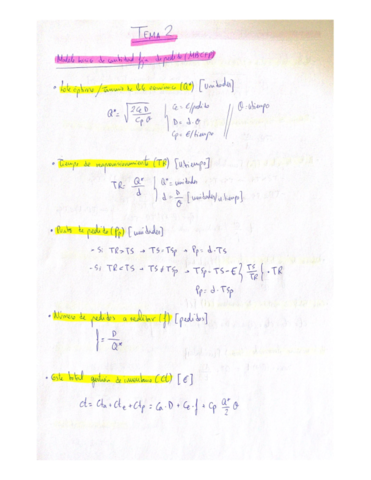 TEMA 2
Modelo básico de cantidad fija de pedido (MBCFP)
• Lote óptimo / Tamaño de lote económico (Q*) [unidades]
Q* = √(2 Ce D / Cp θ)   Ce = €/pedido   θ = tiempo
D = d · θ
Cp = €/u·tiempo
• Tiempo de reaprovisionamiento (TR) [u.tiempo]
TR = Q* / d   Q* = unidades
d = D/θ [unidades/u.tiempo]
• Punto de pedido (Pp) [unidades]
- Si TR > TS → TS = TSp → Pp = d · TS
- Si TR < TS → TS ≠ TSp → TSp = TS - E {TS/TR} · TR
Pp = d · TSp
• Número de pedidos a realizar (f) [pedidos]
f = D / Q*
• Coste total gestión de inventario (Ct) [€]
Ct = Cta + Cte + Ctp = Ca · D + Ce · f + Cp Q*/2 θ